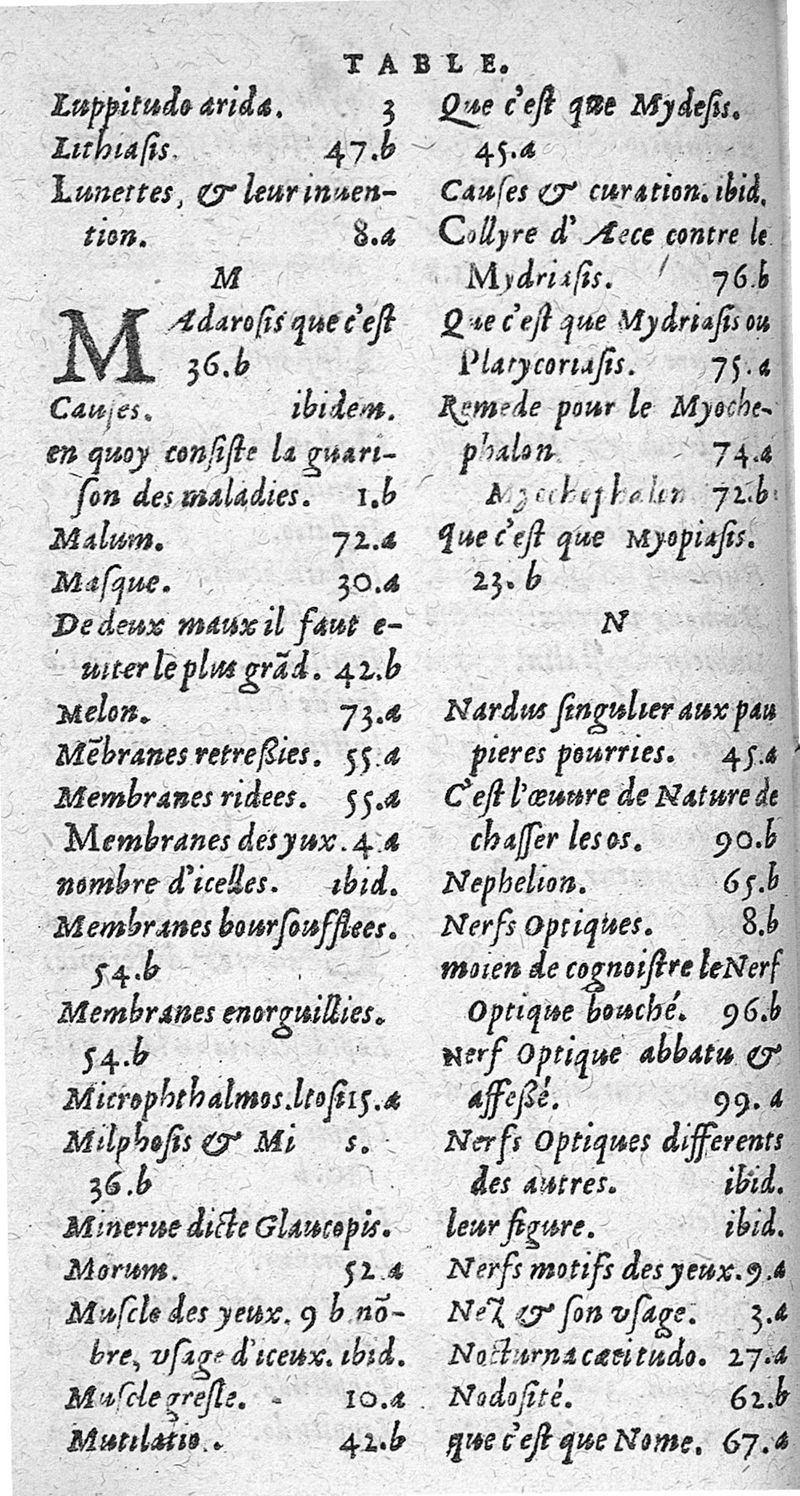 TABLE.
Luppitudo arida. 3
Lithiasis. 47.b
Lunettes, & leur inuen-
tion. 8.a
M
MAdarosis que c'est
36.b
Causes. ibidem.
en quoy consiste la guari-
son des maladies. 1.b
Malum. 72.a
Masque. 30.a
De deux maux il faut e-
uiter le plus grãd. 42.b
Melon. 73.a
Mẽbranes retreßies. 55.a
Membranes ridees. 55.a
Membranes des yux. 4.a
nombre d'icelles. ibid.
Membranes boursoufflees.
54.b
Membranes enorguillies.
54.b
Microphthalmos. 15.a
Milphosis & Mi s.
36.b
Minerue dicte Glaucopis.
Morum. 52.a
Muscle des yeux. 9 b nõ-
bre, vsage d'iceux. ibid.
Muscle gresle. 10.a
Mutilatio. 42.b
Que c'est que Mydesis.
45.a
Causes & curation. ibid.
Collyre d'Aece contre le
Mydriasis. 76.b
Que c'est que Mydriasis ou
Platycoriasis. 75.a
Remede pour le Myoche-
phalon 74.a
Myochephalon 72.b
que c'est que Myopiasis.
23. b
N
Nardus singulier aux pau
pieres pourries. 45.a
C'est l'œuure de Nature de
chasser les os. 90.b
Nephelion. 65.b
Nerfs Optiques. 8.b
moien de cognoistre le Nerf
Optique bouché. 96.b
Nerf Optique abbatu &
affeßé. 99.a
Nerfs Optiques differents
des autres. ibid.
leur figure. ibid.
Nerfs motifs des yeux. 9.a
Nez & son vsage. 3.a
Nocturna cæcitudo. 27.a
Nodosité. 62.b
que c'est que Nome. 67.a